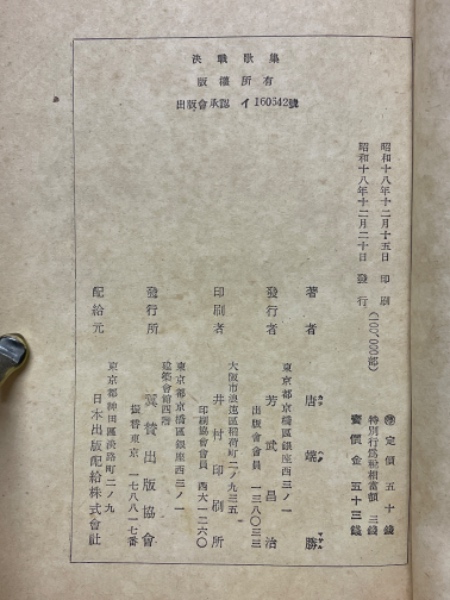 決戰歌集
版權所有
出版會承認 イ160542號
昭和十八年十二月十五日 印刷
昭和十八年十二月二十日 發行 (100,000部)
定價 五十錢
特別行爲稅相當額 三錢
賣價金 五十三錢
著者 唐端勝
東京都京橋區銀座西三ノ一
發行者 芳武昌治
出版會會員 一三八〇三三
大阪市浪速區稻荷町二ノ九三五
印刷者 井村印刷所
印刷協會會員 西大一二六〇
東京都京橋區銀座西三ノ一
建築會館四階
發行所 翼贊出版協會
振替東京 一七八八一七番
東京都神田區淡路町二ノ九
配給元 日本出版配給株式會社